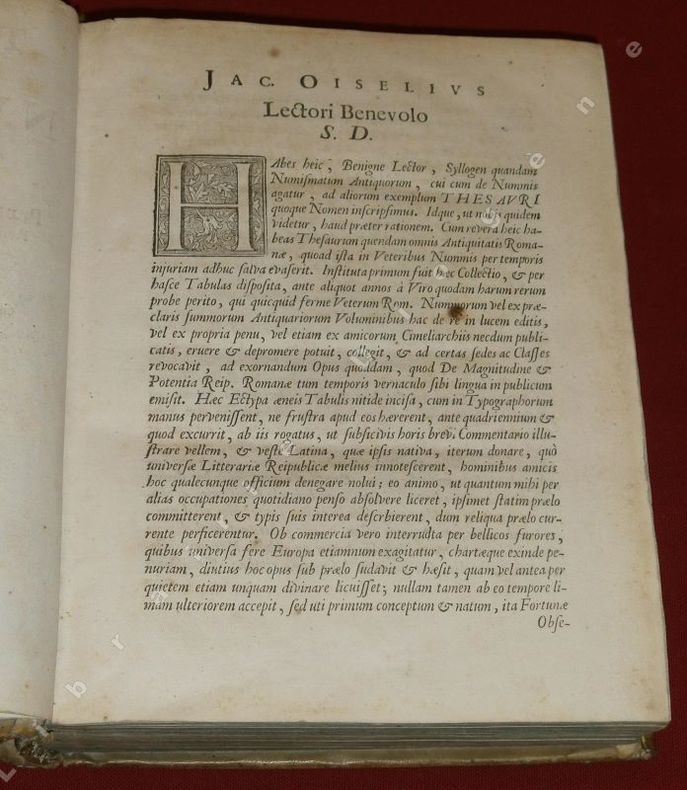 JAC. OISELIVS
Lectori Benevolo
S. D.
HAbes heic, Benigne Lector, Syllogen quandam
Numismatum Antiquorum, cui cum de Nummis
agatur, ad aliorum exemplum THESAVRI
quoque Nomen inscripsimus. Idque, ut nobis quidem
videtur, haud præter rationem. Cum revera heic ha-
beas Thesaurum quendam omnis Antiquitatis Roma-
næ, quoad ista in Veteribus Nummis per temporis
injuriam adhuc salva evaserit. Instituta primum fuit hæc Collectio, & per
hasce Tabulas disposita, ante aliquot annos à Viro quodam harum rerum
probe perito, qui quicquid ferme Veterum Rom. Nummorum vel ex præ-
claris summorum Antiquariorum Voluminibus hac de re in lucem editis,
vel ex propria penu, vel etiam ex amicorum Cimeliarchiis necdum publi-
catis, eruere & depromere potuit, collegit, & ad certas sedes ac Classes
revocavit, ad exornandum Opus quoddam, quod De Magnitudine &
Potentia Reip. Romanæ tum temporis vernaculo sibi lingua in publicum
emisit. Hæc Ectypa æneis Tabulis nitide incisa, cum in Typographorum
manus pervenissent, ne frustra apud eos hærerent, ante quadriennium &
quod excurrit, ab iis rogatus, ut subsicivis horis brevi Commentario illu-
strare vellem, & veste Latina, quæ ipsis nativa, iterum donare, quò
universæ Litterariæ Reipublicæ melius innotescerent, hominibus amicis
hoc qualecunque officium denegare nolui; eo animo, ut quantum mihi per
alias occupationes quotidiano penso absolvere liceret, ipsimet statim prælo
committerent, & typis suis interea describerent, dum reliqua prælo cur-
rente perficerentur. Ob commercia vero interrupta per bellicos furores,
quibus universa fere Europa etiamnum exagitatur, chartæque exinde pe-
nuriam, diutius hoc opus sub prælo sudavit & hæsit, quam vel antea per
quietem etiam unquam divinare licuisset; nullam tamen ab eo tempore li-
mam ulteriorem accepit, sed uti primum conceptum & natum, ita Fortunæ
Obse-